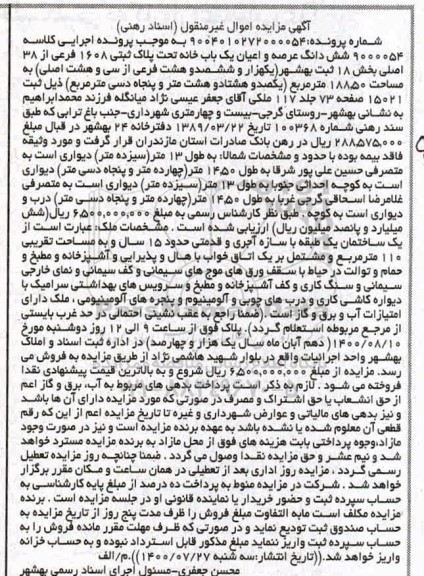 آگهی مزایده اموال غیرمنقول (اسناد رهنی)
شماره پرونده: ۹۰۰۴۰۱۰۲۷۲۰۰۰۰۵۴ به موجب پرونده اجرایی کلاسه
۹۰۰۰۰۵۴ شش دانگ عرصه و اعیان یک باب خانه تحت پلاک ثبتی ۱۶۰۸ فرعی از ۳۸
اصلی بخش ۱۸ ثبت بهشهر(یکهزار و ششصدو هشت فرعی از سی و هشت اصلی) به
مساحت ۱۸۸/۵۰ مترمربع (یکصدو هشتادو هشت متر و پنجاه دسی مترمربع) ذیل ثبت
۱۵۰۲۱ صفحه ۷۳ جلد ۱۱۷ ملکی آقای جعفر عیسی نژاد میانگله فرزند محمدابراهیم
به نشانی بهشهر-روستای گرجی-بیست و چهارمتری شهرداری-جنب باغ ترابی که طبق
سند رهنی شماره ۱۰۰۳۶۸ تاریخ ۱۳۸۹/۰۳/۲۲ دفترخانه ۲۴ بهشهر در قبال مبلغ
۲۸۸,۵۷۵,۰۰۰ ریال در رهن بانک صادرات استان مازندران قرار گرفت و مورد وثیقه
فاقد بیمه بوده با حدود و مشخصات شمالا: به طول ۱۳ متر(سیزده متر) دیواری است به
متصرفی حسین علی پور شرقا به طول ۱۴/۵۰ متر(چهارده متر و پنجاه دسی متر) دیواری
است به کوچه احداثی جنوبا به طول ۱۳ متر(سیزده متر) دیواری است به متصرفی
غلامرضا اسحاقی گرجی غربا به طول ۱۴/۵۰ متر(چهارده متر و پنجاه دسی متر) درب و
دیواری است به کوچه . طبق نظر کارشناس رسمی به مبلغ ۶,۵۰۰,۰۰۰,۰۰۰ ریال(شش
میلیارد و پانصد میلیون ریال) ارزیابی شده است . مشخصات ملک عبارت است از
یک ساختمان یک طبقه با سازه آجری و قدمتی حدود ۱۵ سال و به مساحت تقریبی
۱۱۰ مترمربع و مشتمل بر یک اتاق خواب با هال و پذیرایی و آشپزخانه و مطبخ و
حمام و توالت در حیاط با سقف ورق های موج های سیمانی و کف سیمانی و نمای خارجی
سیمانی و سنگ کاری و کف آشپزخانه و مطبخ و سرویس های بهداشتی سرامیک با
دیواره کاشی کاری و درب های چوبی و آلومینیوم و پنجره های آلومینیومی ، ملک دارای
امتیازات آب و برق و گاز است .(ضمنا راجع به عقب نشینی احتمالی در حد غرب بایستی
از مرجع مربوطه استعلام گردد). پلاک فوق از ساعت ۹ الی ۱۲ روز دوشنبه مورخ
۱۴۰۰/۰۸/۱۰( دهم آبان ماه سال یک هزار و چهارصد) در اداره ثبت اسناد و املاک
بهشهر واحد اجرائیات واقع در بلوار شهید هاشمی نژاد از طریق مزایده به فروش می
رسد. مزایده از مبلغ ۶,۵۰۰,۰۰۰,۰۰۰ ریال شروع و به بالاترین قیمت پیشنهادی نقدا
فروخته می شود . لازم به ذکر است پرداخت بدهی های مربوط به آب، برق و گاز اعم
از حق انشعاب یا حق اشتراک و مصرف در صورتی که مورد مزایده دارای آن ها باشد
و نیز بدهی های مالیاتی و عوارض شهرداری و غیره تا تاریخ مزایده اعم از این که رقم
قطعی آن معلوم شده یا نشده باشد به عهده برنده مزایده است و نیز در صورت وجود
مازاد،وجوه پرداختی بابت هزینه های فوق از محل مازاد به برنده مزایده مسترد خواهد
شد و نیم عشر و حق مزایده نقدا وصول می گردد . ضمنا چنانچه روز مزایده تعطیل
رسمی گردد ، مزایده روز اداری بعد از تعطیلی در همان ساعت و مکان مقرر برگزار
خواهد شد . شرکت در مزایده منوط به پرداخت ده درصد از مبلغ پایه کارشناسی به
حساب سپرده ثبت و حضور خریدار یا نماینده قانونی او در جلسه مزایده است . برنده
مزایده مکلف است مابه التفاوت مبلغ فروش را ظرف مدت پنج روز از تاریخ مزایده به
حساب صندوق ثبت تودیع نماید و در صورتی که ظرف مهلت مقرر مانده فروش را به
حساب سپرده ثبت واریز ننماید مبلغ مذکور قابل استرداد نبوده و به حساب خزانه
واریز خواهد شد.((تاریخ انتشار:سه شنبه ۱۴۰۰/۰۷/۲۷)).م/الف
محسن جعفری-مسئول اجرای اسناد رسمی بهشهر